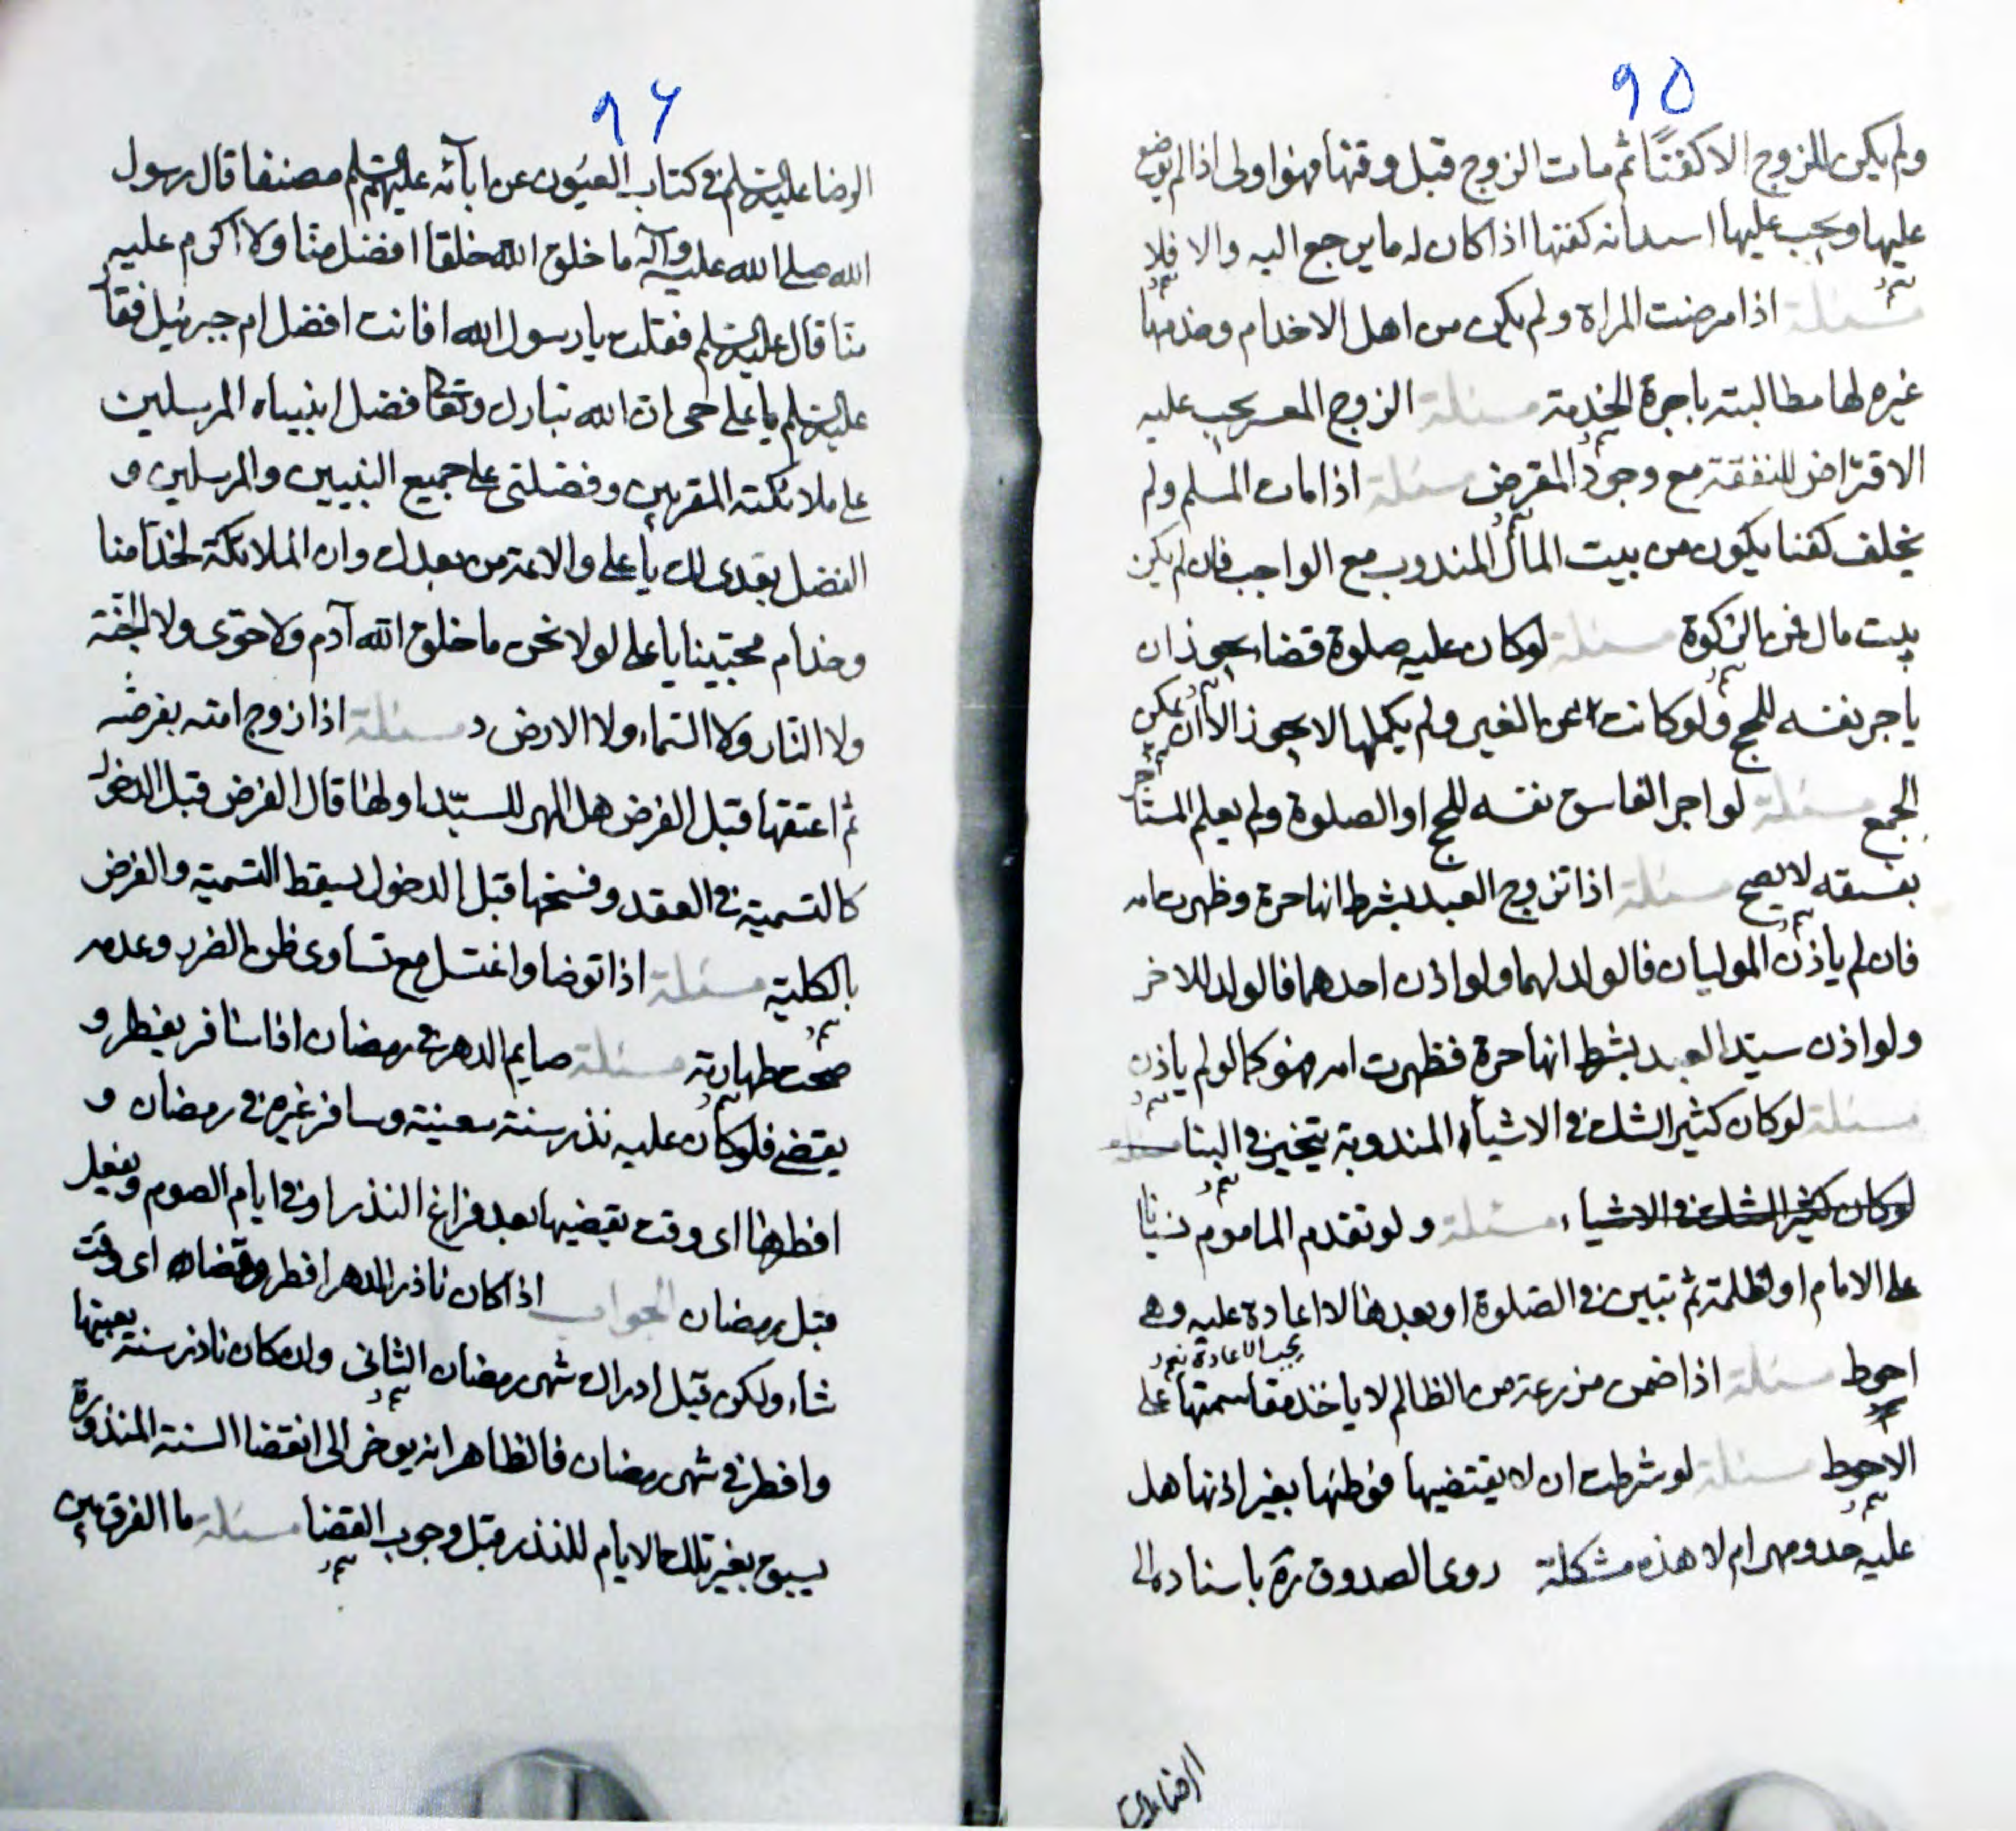 ٩٥
ولم يكن للزوج الا كفنًا ثم مات الزوج قبل وقتها فهو اولى اذا لم يوضع
عليها ويجب عليها استدانه كفنها اذا كان له ما يرجع اليه والا فلا
مسئلة اذا مرضت المراة ولم يكن من اهل الاخدام وخدمها
غيره لها مطالبته باجرة الخدمة مسئلة الزوج المعسر يجب عليه
الاقتراض للنفقة مع وجود المقرض مسئلة اذا مات المسلم ولم
يخلف كفنا يكون من بيت المال المندوب مع الواجب فان لم يكن
بيت مال فمن الزكوة مسئلة لو كان عليه صلوة قضاء يجوز ان
ياجر نفسه للحج ولو كانت عن الغير ولم يكملها لا يجوز الا ان يمكن
الجمع مسئلة لو اجر الفاسق نفسه للحج او الصلوة ولم يعلم المستاجر
بفسقه لا يصح مسئلة اذا تزوج العبد بشرط انها حرة وظهرت امه
فان لم ياذن الموليان فالولد لهما ولو اذن احدهما فالولد للاخر
ولو اذن سيد العبد بشرط انها حرة فظهرت امه فهو كما لو لم ياذن
مسئلة لو كان كثير الشك في الاشياء المندوبة يتخير في البنا مسئلة
لو كان كثير الشك في الاشياء مسئلة ولو تقدم الماموم نسيانا
على الامام او لظلمة ثم تبين في الصلوة او بعدها لا اعادة عليه وهي
يجب الاعادة
احوط مسئلة اذا ضمن مزرعة من الظالم لا ياخذ مقاسمتها على
الاحوط مسئلة لو شرطت ان لا يفتضيها فوطئها بغير اذنها هل
عليه حد ومهر ام لا هذه مشكلة روى الصدوق ره باسناده الى
الرضا عليه
٩٦
الرضا عليه السلم في كتاب العيون عن ابائه عليهم السلم مصنفا قال رسول
الله صلى الله عليه وآله ما خلق الله خلقا افضل منا ولا اكرم عليه
منا قال عليه السلم فقلت يا رسول الله افانت افضل ام جبرئيل فقا
عليه السلم يا على ان الله تبارك وتعا فضل انبيياه المرسلين
على ملائكته المقربين وفضلنى على جميع النبيين والمرسلين و
الفضل بعدى لك يا على والائمة من بعدك وان الملائكة لخدامنا
وخدام محبينا يا على لولا نحن ما خلق الله آدم ولا حوى ولا الجنة
ولا النار ولا السماء ولا الارض مسئلة اذا زوج امته بفرض
ثم اعتقها قبل الفرض هل المهر للسيد او لها قال الفرض قبل الدخول
كالتسمية في العقد وفسخها قبل الدخول يسقط التسمية والفرض
بالكلية مسئلة اذا توضا واغتسل مع تساوى ظن الضرر وعدمه
صحت طهارته مسئلة صايم الدهر في رمضان اذا سافر يفطر و
يقضى فلو كان عليه نذر سنة معينة وسافر غيره في رمضان و
افطرها اى وقت يقضيها بعد فراغ النذر او في ايام الصوم ويفعل
قبل رمضان الجواب اذا كان ناذر الدهر افطر وقضاه اى وقت
شاء ولكن قبل ادراك شهر رمضان الثانى وان كان ناذر سنة بعينها
وافطر في شهر رمضان فالظاهر انه يوخر الى انقضا السنة المنذورة
يسبق بغير تلك الايام للنذر قبل وجوب القضا مسئلة ما الفرق بين